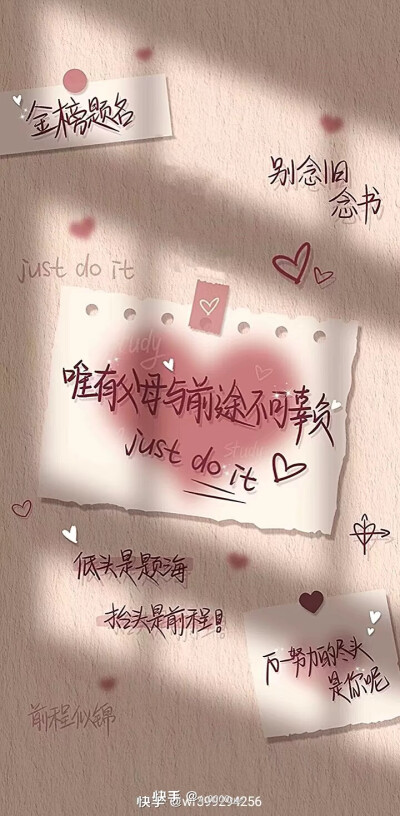 金榜题名
别念旧
念书
just do it
study
唯有父母与前途不可辜负
study
just do it
低头是题海
抬头是前程!
万一努力的尽头
是你呢
前程似锦
快手 @
快手 @wf399294256